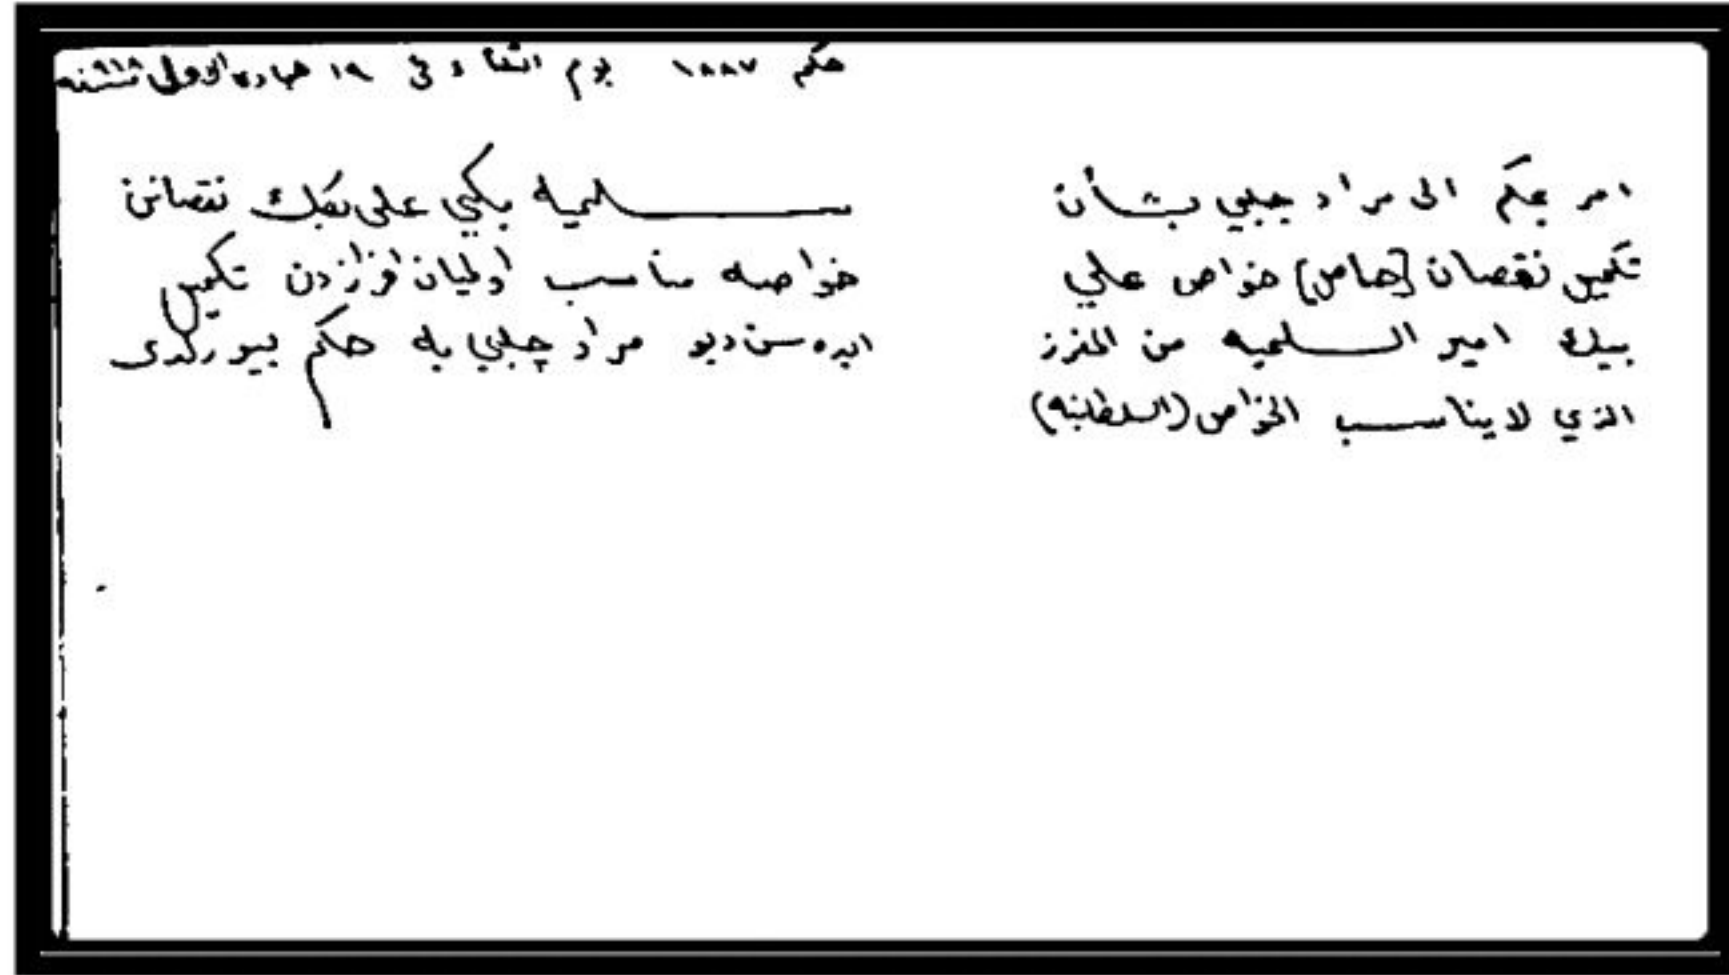 حكم ١٨٨٧ يوم الثلثا و في ١٩ جمادى الاول سنه ٩١٨
امر بحكم الى مراد جبلي بشأن
تكميل نقصان [حاص] خواص علي
بيك امير السلميه من المفرز
الذي لا يناسب الخواص (السلطانيه)
سلميه بكي على بكك نقصانن
خواصه مناسب اوليان افرازدن تكميل
ايده سن ديو مراد چلبي يه حكم بيورلدى